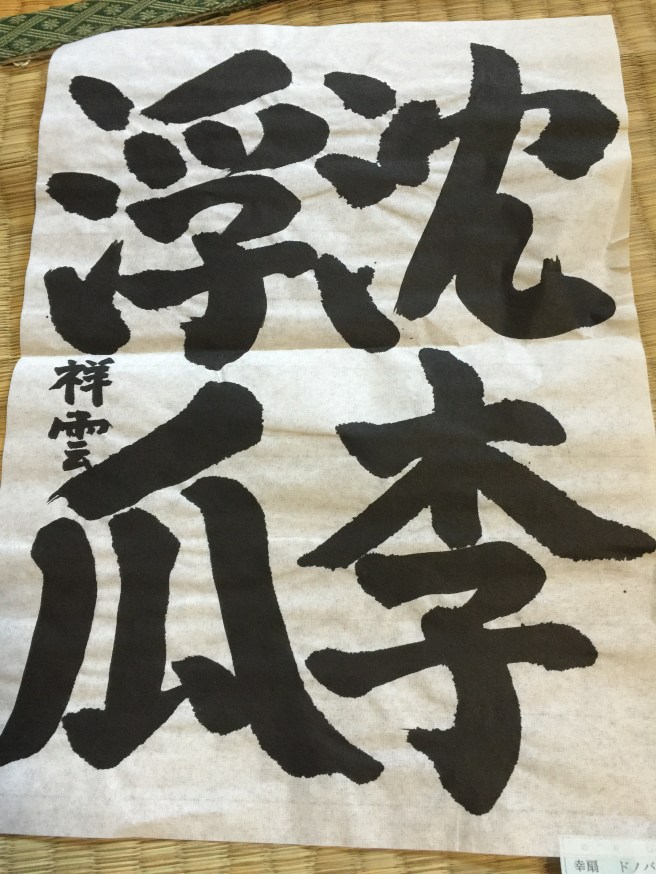 沈李
浮瓜
祥雲
幸扇 ドノバ